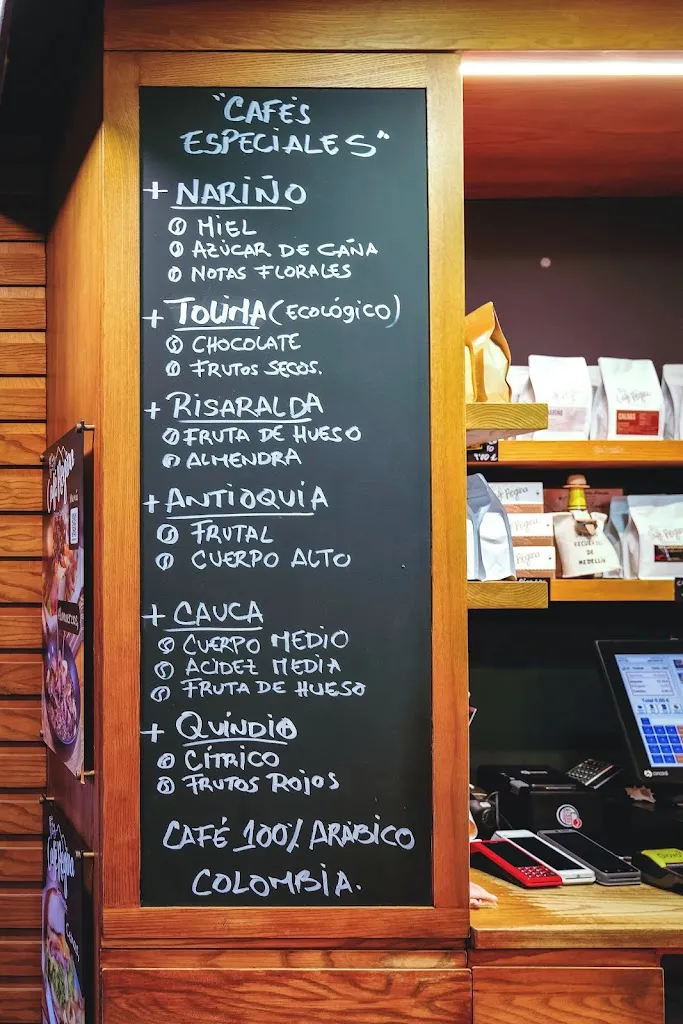 "CAFÉS
ESPECIALES"
+ NARIÑO
MIEL
AZÚCAR DE CAÑA
NOTAS FLORALES
+ TOLIMA (ECOLÓGICO)
CHOCOLATE
FRUTOS SECOS.
+ RISARALDA
FRUTA DE HUESO
ALMENDRA
+ ANTIOQUIA
FRUTAL
CUERPO ALTO
+ CAUCA
CUERPO MEDIO
ACIDEZ MEDIA
FRUTA DE HUESO
+ QUINDIO
CÍTRICO
FRUTOS ROJOS
CAFÉ 100% ARÁBICO
COLOMBIA.
Café Regina
CALDAS
Regina
RECUERDO
DE
MEDELLÍN
Regina